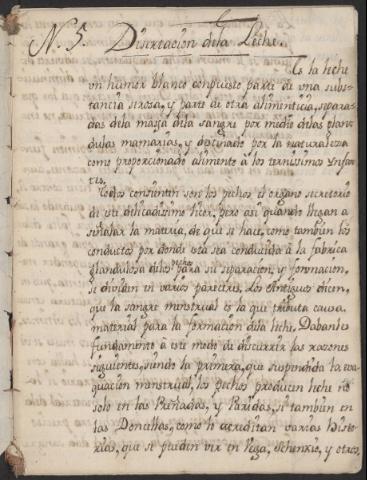 N. 5. Disertacion dela Leche.
Es la leche
un humor blanco compuesto parte de una subs-
tancia serosa, y parte de otra alimenticia, separa-
das dela massa dela sangre por medio delas glan-
dulas mamarias, y destinado por la naturaleza
como proporcionado alimento á los ternissimos Ynfan-
tes.
Todos consienten son los pechos el organo secretorio
de este delicadissimo licor, pero asi quando llegan a
señalar la materia, de que se hace, como tambien los
conductos por donde esta sea conducida à la fabrica
glandulosa delos pechos para su separacion, y formacion,
se dividen en varios pareceres. Los Antiguos dicen,
que la sangre menstrual es la que tributa causa
material para la formacion dela leche, Dabanles
fundamento à este modo de discurrir las razones
siguientes, siendo la primera, que suspendida la eva-
quacion menstrual, los pechos producen leche no
solo en las Preñadas, y Paridas, si tambien en
las Doncellas, como lo acreditan varias Histo-
rias, que se pueden ver en Vega, Schenkio, y otros,